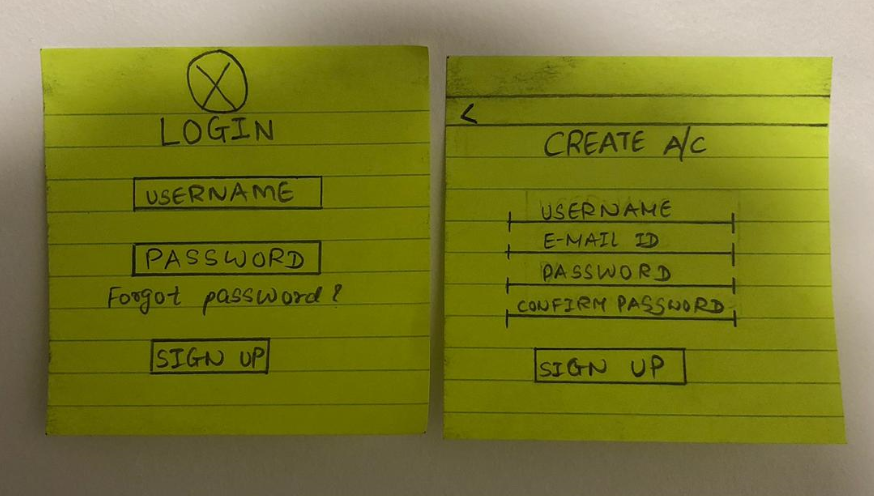 LOGIN
USERNAME
PASSWORD
Forgot password?
SIGN UP
<
CREATE A/C
USERNAME
E-MAIL ID
PASSWORD
CONFIRM PASSWORD
SIGN UP